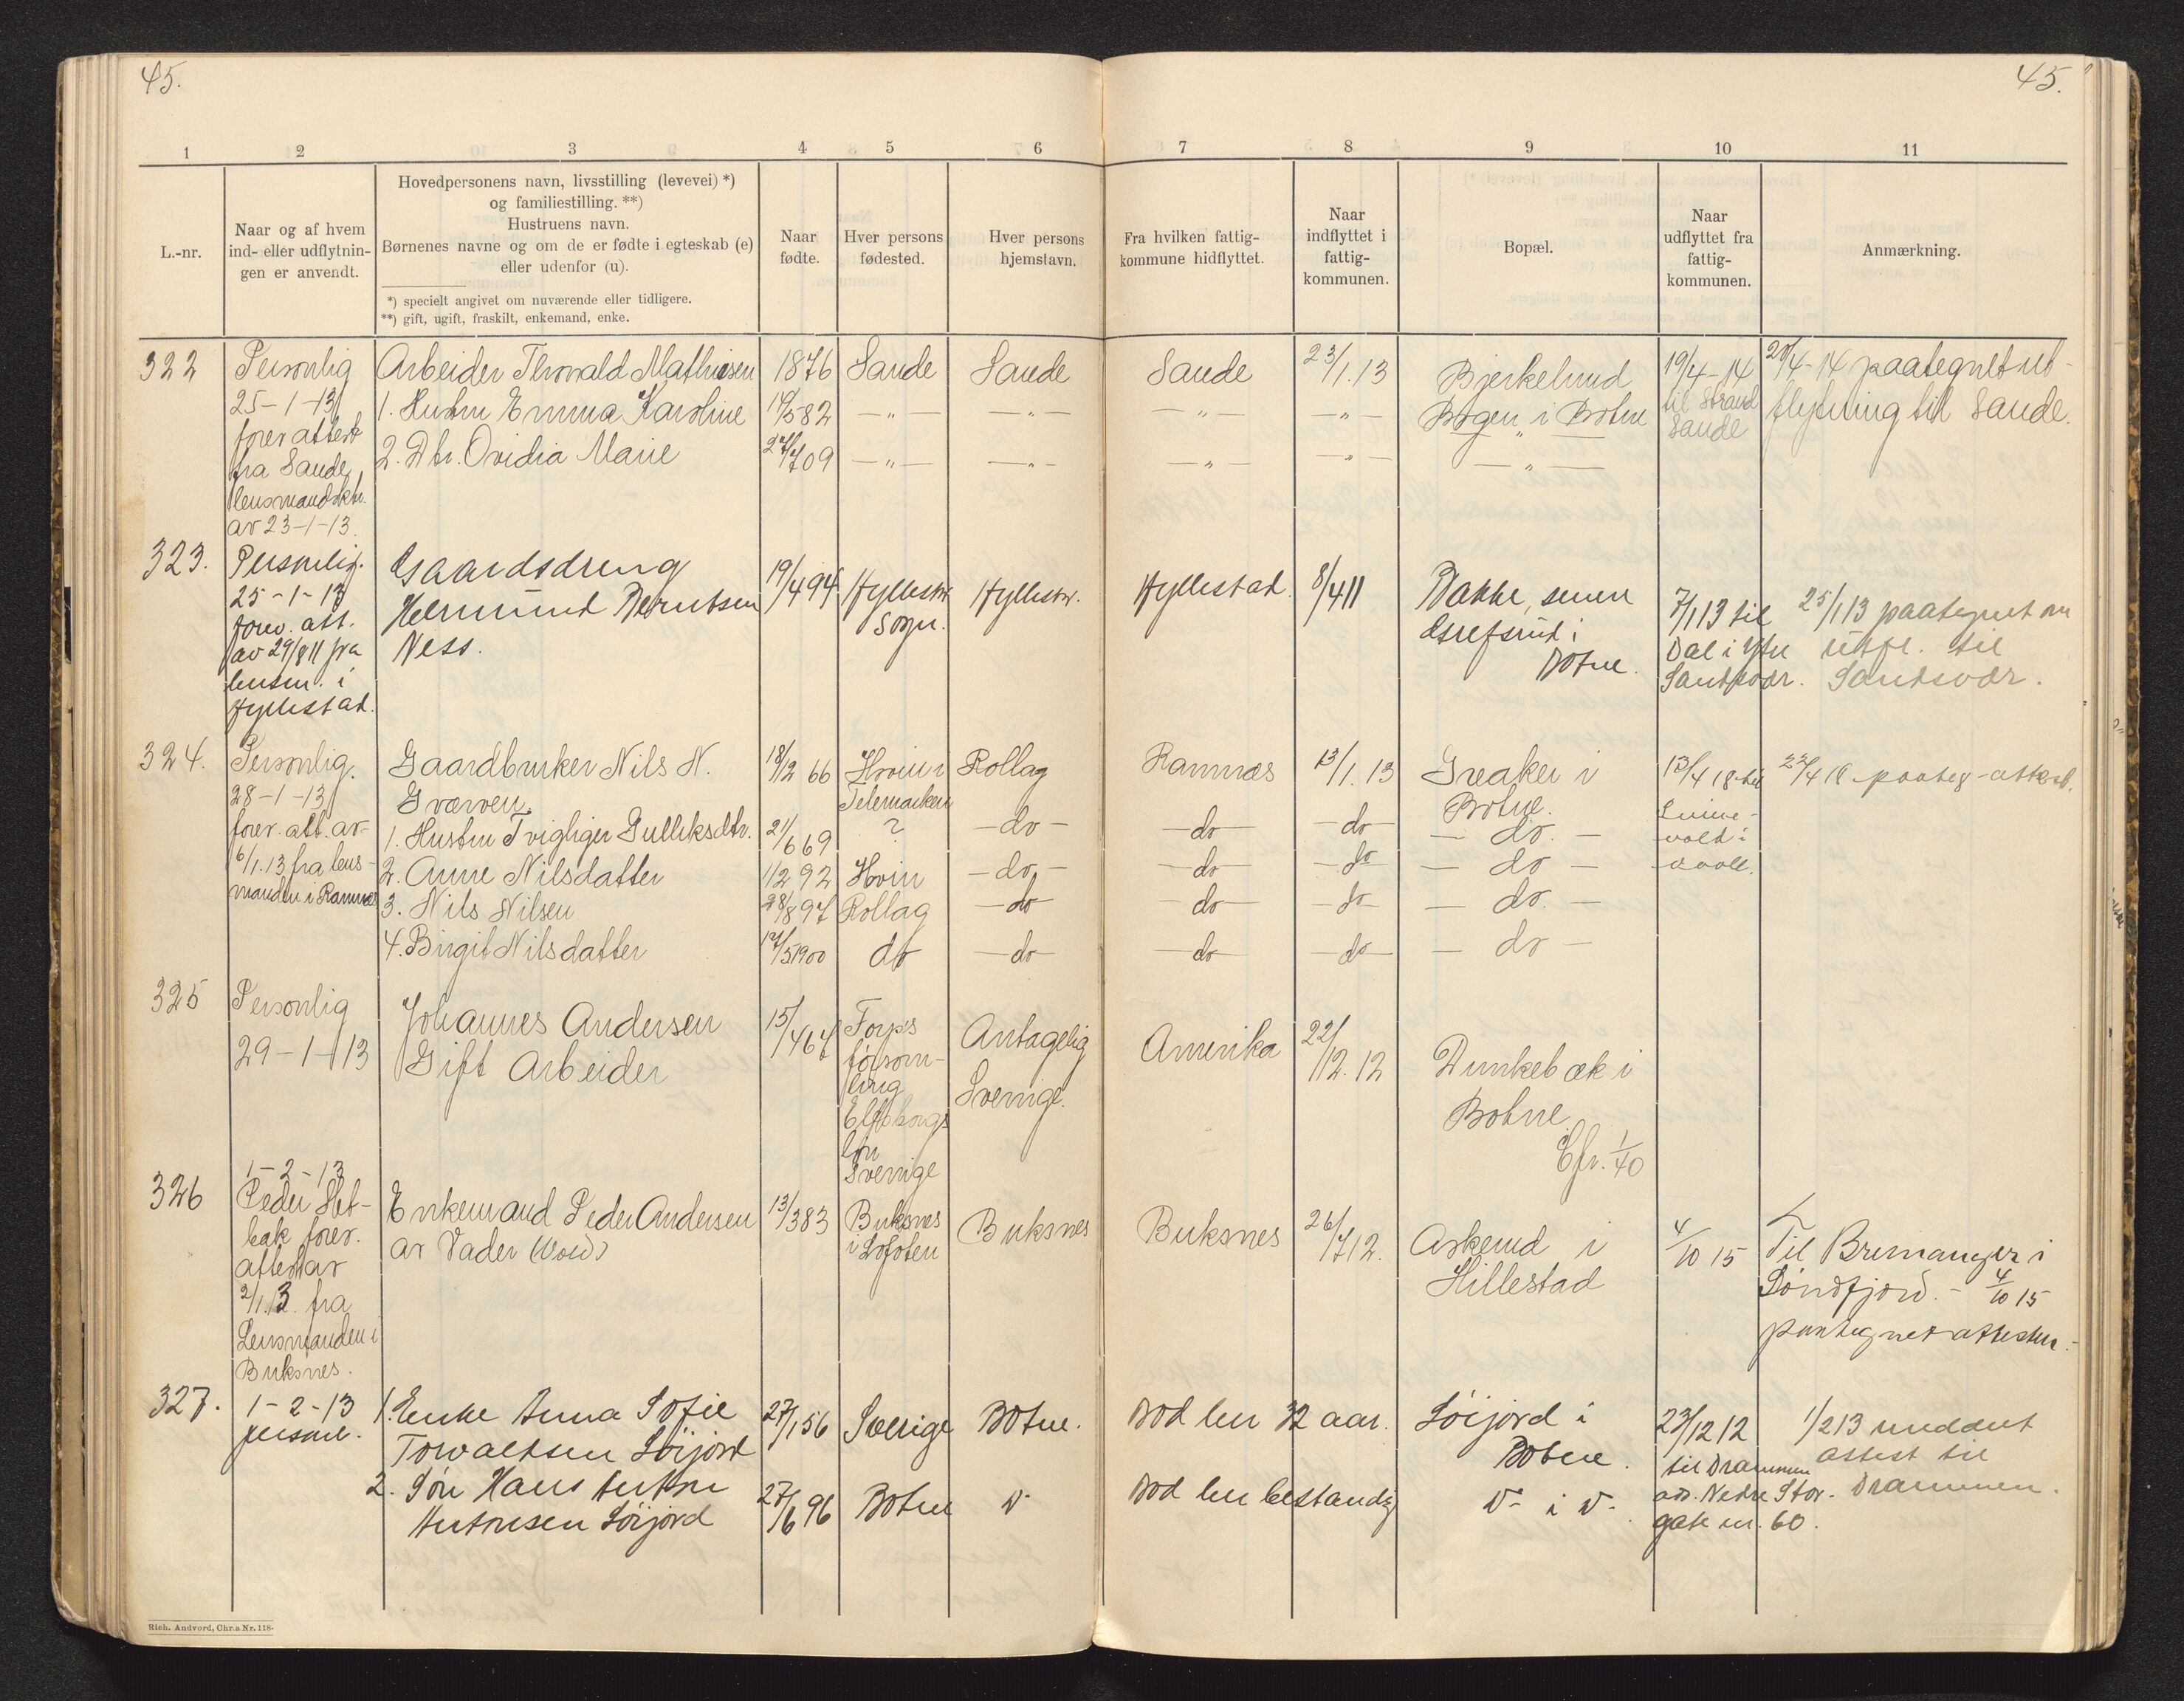 45.
45.
1 2 3 4 5 6 7 8 9 10 11
L.-nr.
Naar og af hvem
ind- eller udflytnin-
gen er anvendt.
Hovedpersonens navn, livsstilling (levevei) *)
og familiestilling. **)
Hustruens navn.
Børnenes navne og om de er fødte i egteskab (e)
eller udenfor (u).
*) specielt angivet om nuværende eller tidligere.
**) gift, ugift, fraskilt, enkemand, enke.
Naar
fødte.
Hver persons
fødested.
Hver persons
hjemstavn.
Fra hvilken fattig-
kommune hidflyttet.
Naar
indflyttet i
fattig-
kommunen.
Bopæl.
Naar
udflyttet fra
fattig-
kommunen.
Anmærkning.
322
Personlig
25-1-13
forev attest
fra Sande
lensmandsktr.
av 23-1-13.
Arbeider Thorvald Mathisen 1876 Sande Sande Sande 23/1.13
1. Hustru Emma Karoline 19/5 82 —„— —„— —„— —„—
2. Dtr. Ovidia Marie 27/7 09 —„— —„— —„— —„—
Bjerkelund
Bogen i Botne
—„—
19/4-14
til Strand
Sande
20/4-14 paategnet ut-
flytning til Sande.
323.
Personlig.
25-1-13
forev. att.
av 29/8 11 fra
lensm. i
Hyllestad.
Gaardsdreng
Helmund Berntsen
Ness.
19/4 94
Hyllestad
Sogn.
Hyllestad.
Hyllestad.
8/4 11
Bakke, senere
Grefsrud i
Botne.
7/1 13 til
Dal i Ytre
Sandsvær.
25/1 13 paategnet om
utfl. til
Sandsvær.
324.
Personlig.
28-1-13
forev. att. av
6/1.13 fra lens-
manden i Ramnes
Gaardbruker Nils N.
Gværven.
1. Hustru Tvigliger Gulliksdtr.
2. Anne Nilsdatter
3. Nils Nilsen
4. Birgit Nilsdatter
18/2 66
21/6 69
11/2 92
28/8 97
17/5 1900
Hovin i
Telemarken
?
Hovin
Rollag
do
Rollag
—do—
—do—
—do—
—do—
Ramnæs
—do—
—do—
—do—
—do—
13/1.13
—do—
—do—
—do—
—do—
Greaker i
Botne.
— do. —
— do —
— do. —
— do —
13/4 18 til
22/4 18 paateg. attest.
325
Personlig
29-1-13
Johannes Andersen
Gift Arbeider
15/4 67
Torps
forsam-
ling
Elfsborgs
län
Sverige
Antagelig
Sverige.
Amerika
22/12.12
Dunkebæk i
Botne
Cfr. 1/40
326
1-2-13
Peder Het-
bak forev.
attest av
2/1.13. fra
Lensmanden i
Buksnes.
Enkemand Peder Andersen
av Vader (Vold)
13/3 83
Buksnes
i Lofoten
Buksnes
Buksnes
26/7 12.
Askerud i
Hillestad
4/10 15
Til Bremanger i
Søndfjord. - 4/10 15
paategnet attesten.-
327.
1-2-13
personl.
1. Enke Anna Sofie
Torvaldsen Løijord
2. Søn Hans Anton
Antonsen Løijord
27/1 56
27/6 96
Sverige
Botne
Botne.
do
Bod her 32 aar.
Bod her bestandig
Løijord i
Botne.
do i do.
23/12 12
til Drammen
ad. Nedre Stor-
gate nr. 60.
1/2 13 meddelt
attest til
Drammen.
Rich. Andvord, Chr.a Nr. 118-